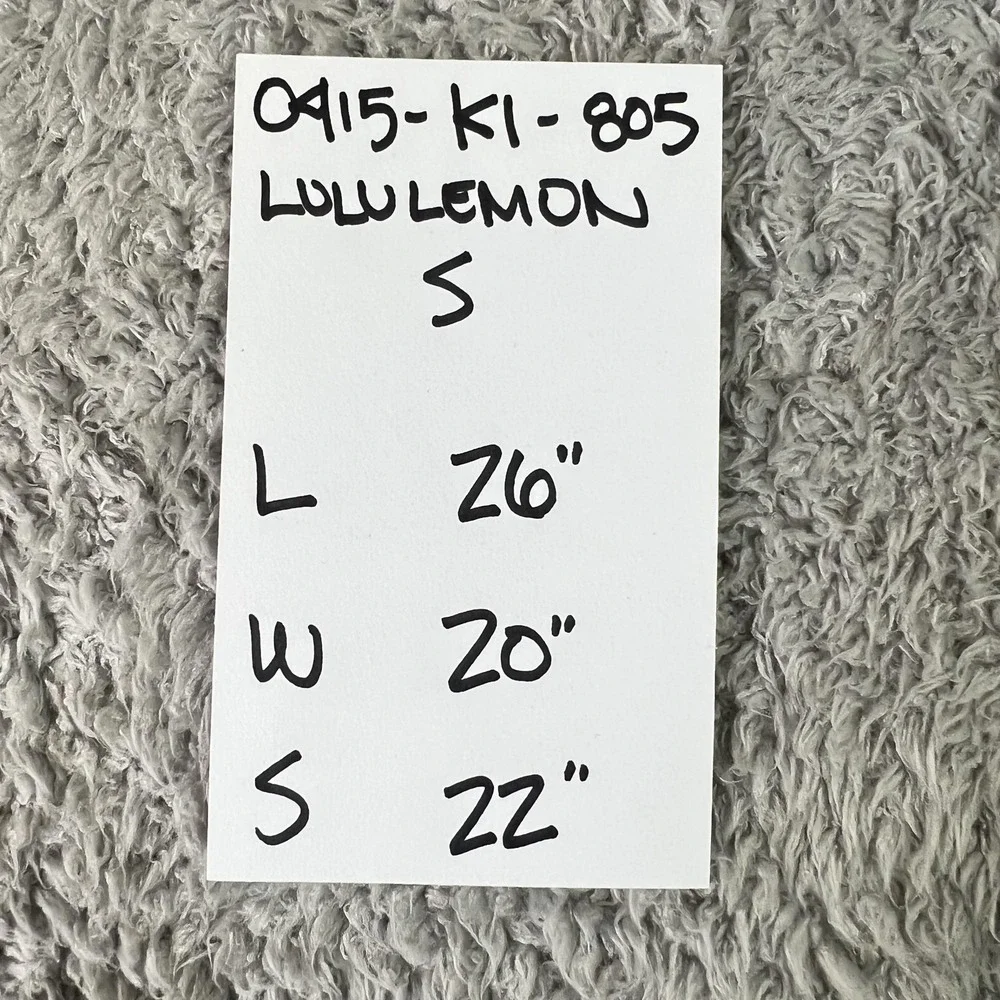 0415-K1-805
LULULEMON
S
L 26"
W 20"
S 22"